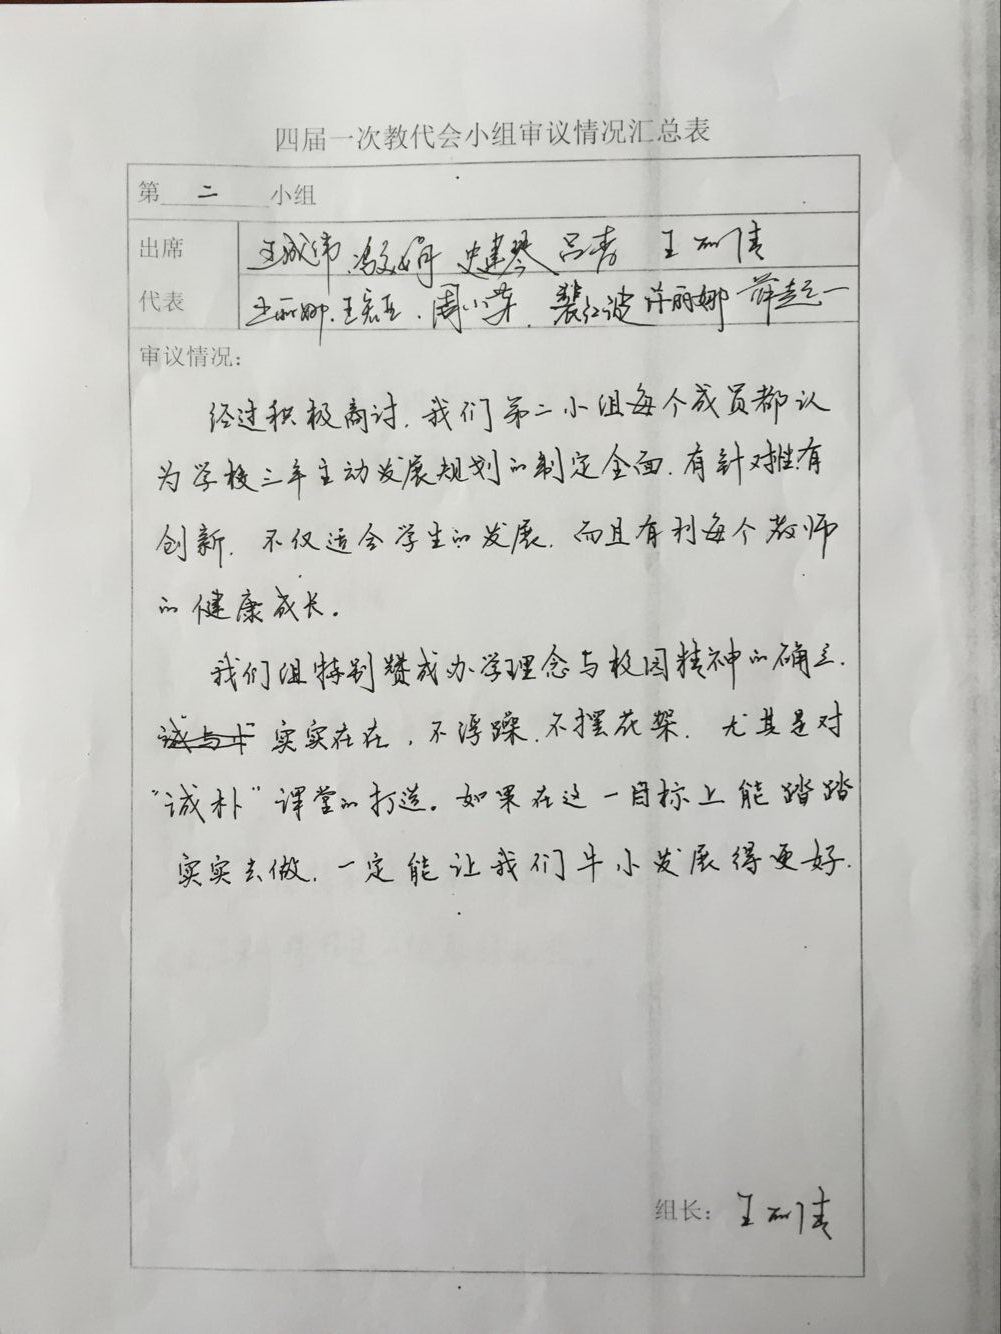 四届一次教代会小组审议情况汇总表
第 二 小组
出席 王成伟 冯文娟 史建琴 吕青 王丽倩
代表 王丽娜、王宏玉、周小荣、裴红波 许丽娜 薛超一
审议情况：
经过积极商讨，我们第二小组每个成员都认
为学校三年主动发展规划的制定全面、有针对性、有
创新，不仅适合学生的发展，而且有利每个教师
的健康成长。
我们组特别赞成办学理念与校园精神的确立，
实实在在，不浮躁，不摆花架，尤其是对
“诚朴”课堂的打造。如果在这一目标上能踏踏
实实去做，一定能让我们牛小发展得更好。
组长：王丽倩